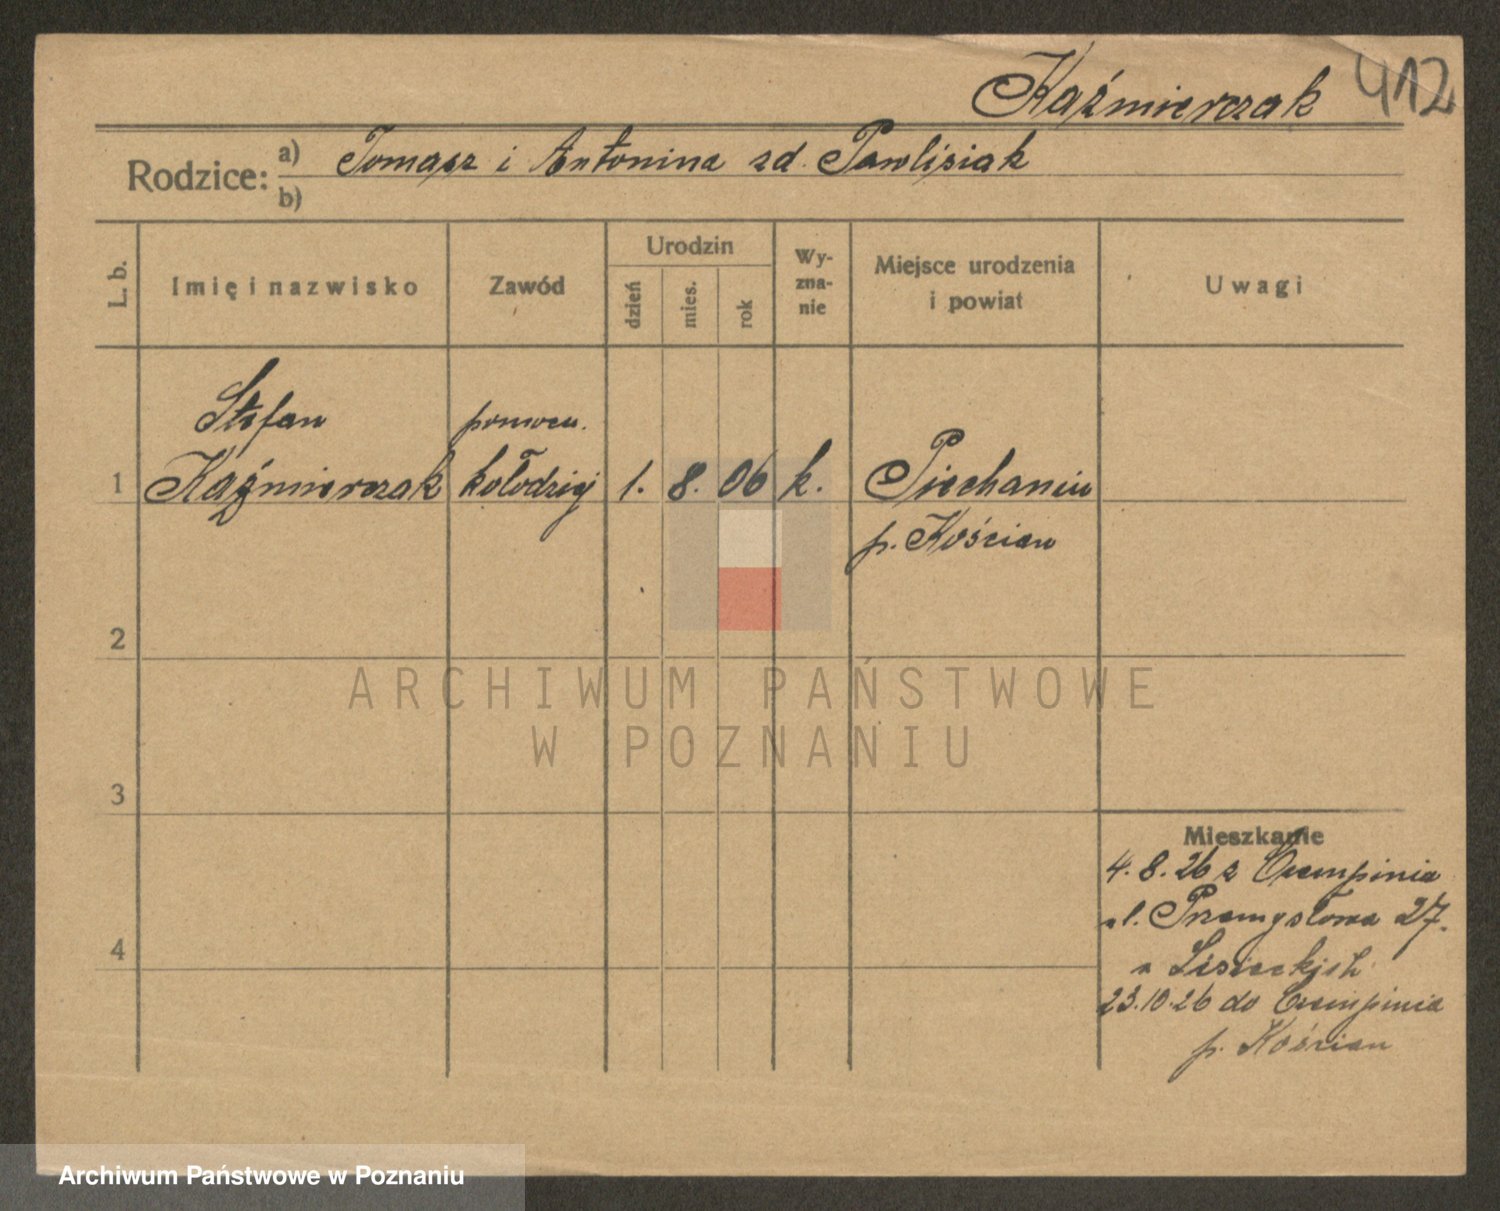 Kaźmierczak 412
Rodzice: a) Tomasz i Antonina zd. Pawlisiak
b)
L. b.
Imię i nazwisko
Zawód
Urodzin
dzień
mies.
rok
Wy-
zna-
nie
Miejsce urodzenia
i powiat
Uwagi
Stefan pomocn.
1 Kaźmierczak kołodziej 1. 8. 06 k. Piechanin
p. Kościan
2
ARCHIWUM PAŃSTWOWE
W POZNANIU
3
Mieszkanie
4. 8. 26 z Czempinia
ul. Przemysłowa 27.
4
u Lisieckich
23.10.26 do Czempinia
p. Kościan
Archiwum Państwowe w Poznaniu